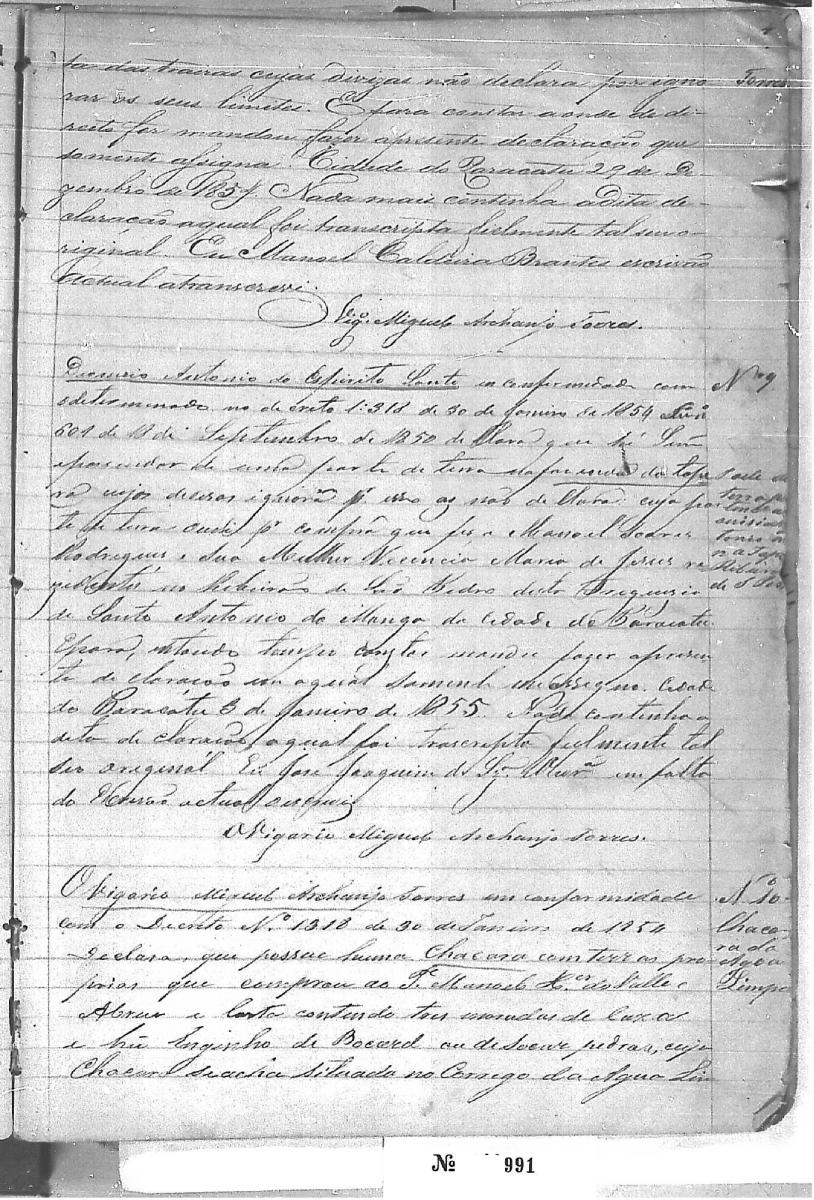 ta das trairas cujas divizas não declara por igno
rar os seus limites. E para constar aonde de di-
reito for mandou fazer apresente declaração que
somente assigna. Cidade do Paracatu 29 de De-
zembro de 1854. Nada mais continha adita de-
claração aqual foi transcripta fielmente tal seu o-
riginal. Eu Manoel Caldeira Brantes escrivão
actual atranscrevi.
Vigº Miguel Archanjo Torres.
Torres
Dionizio Antonio do Espirito Santo em conformidade com
odeterminado no decreto 1:318 de 30 de Janeiro de 1854
601 de 18 de Septembro de 1850 declara que hé Senr
epossuidor de uma parte de terra na fazenda da tape
ra cujas devizas ignora pr isso as não declara: cuja par
te de terra ouve pr compra que fez a Manoel Soares
Rodrigues e Sua Mulher Vicencia Maria de Jesus re
zidentes no Ribeirão de São Pedro desta Freguezia
de Santo Antonio da Manga da Cidade do Paracatu
Epara, constar mandei fazer aprezen
te declaração em aqual somente me assigno. Cidade
do Paracatu 3 de Janeiro de 1855. Nada continha a
dita declaração, aqual foi trascripta fielmente tal
seo original Eu Jose Joaquim da Sª em falta
do Escrivão actual oescrevi
OVigario Miguel Archanjo Torres.
Nº 9
parte de
terra
na Tape
Ribeirão
de S. Pedro
OVigario Miguel Archanjo Torres em conformidade
com o Decreto Nº 1318 de 30 de Janeiro de 1854
Declara, que possue huma Chacara com terras pro-
prias que comprou ao Pe Manoel Xer do Valle e
Abreu e Costa contendo tres moradas de caza
e hũ Enginho de Bocard ou de socar pedras, cuja
Chacara seacha situada no Corrego da Agoa Lim
Nº 10
Chaca-
ra da
Agoa
Limpa
Nº 991